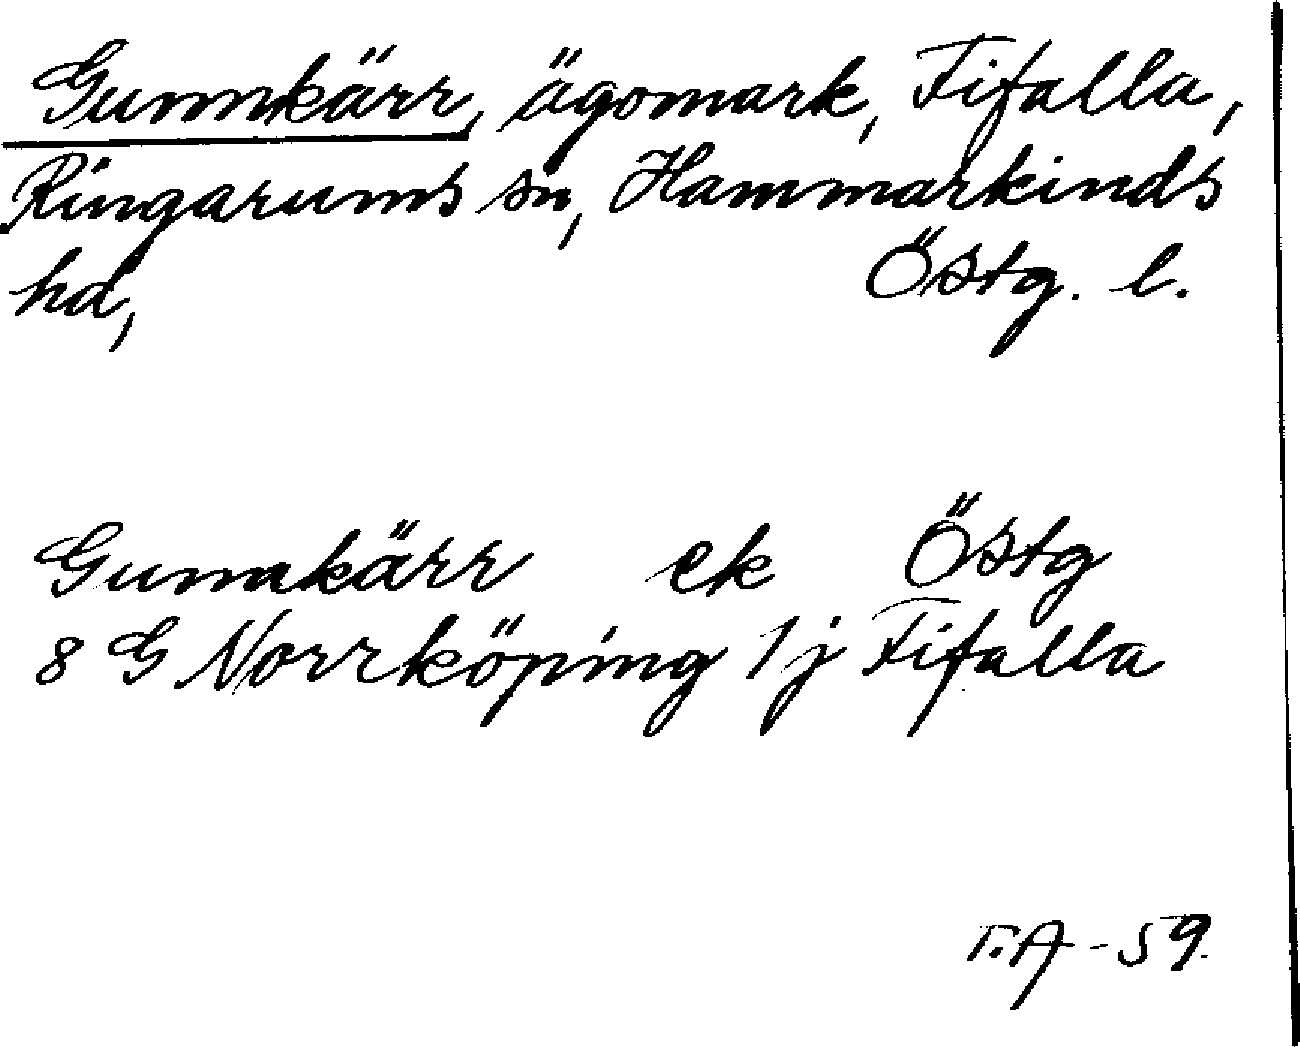 Gunnkärr, ägomark, Fifalla,
Ringarums sn, Hammarkinds
hd, Östg. l.
Gunnkärr ek Östg
8 G Norrköping 1j Fifalla
T.A -59.